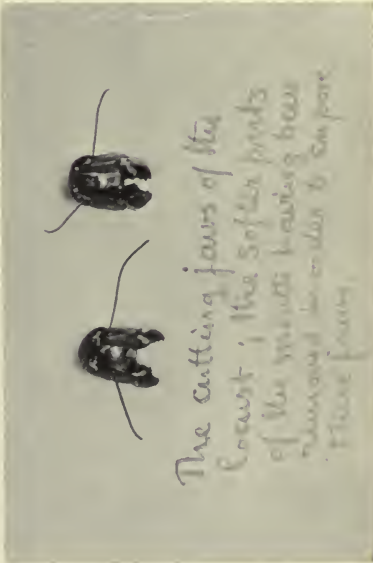 The cutting jaws of the
locust, the softer parts
of the mouth having been
removed in order to expose
these jaws.